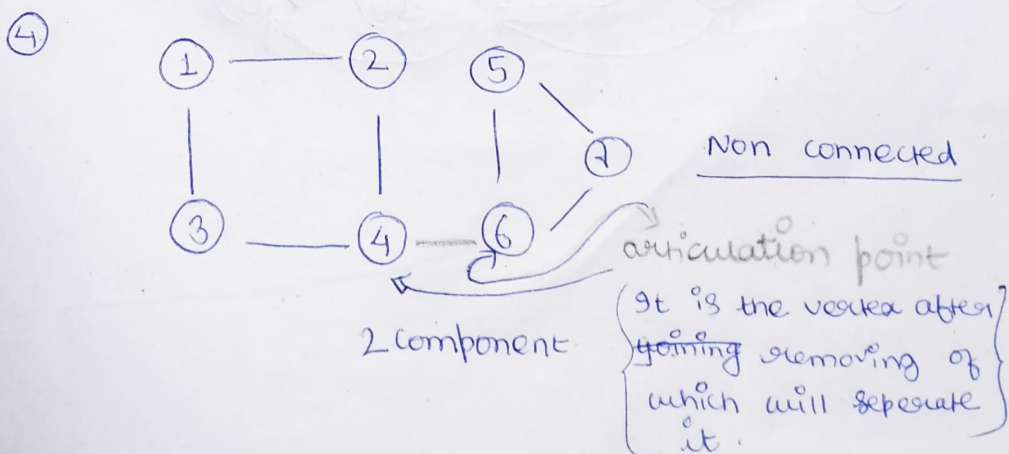 4
1 2 5
7
Non connected
3 4 6
articulation point
2 component
(It is the vertex after
joining removing of
which will seperate
it.)